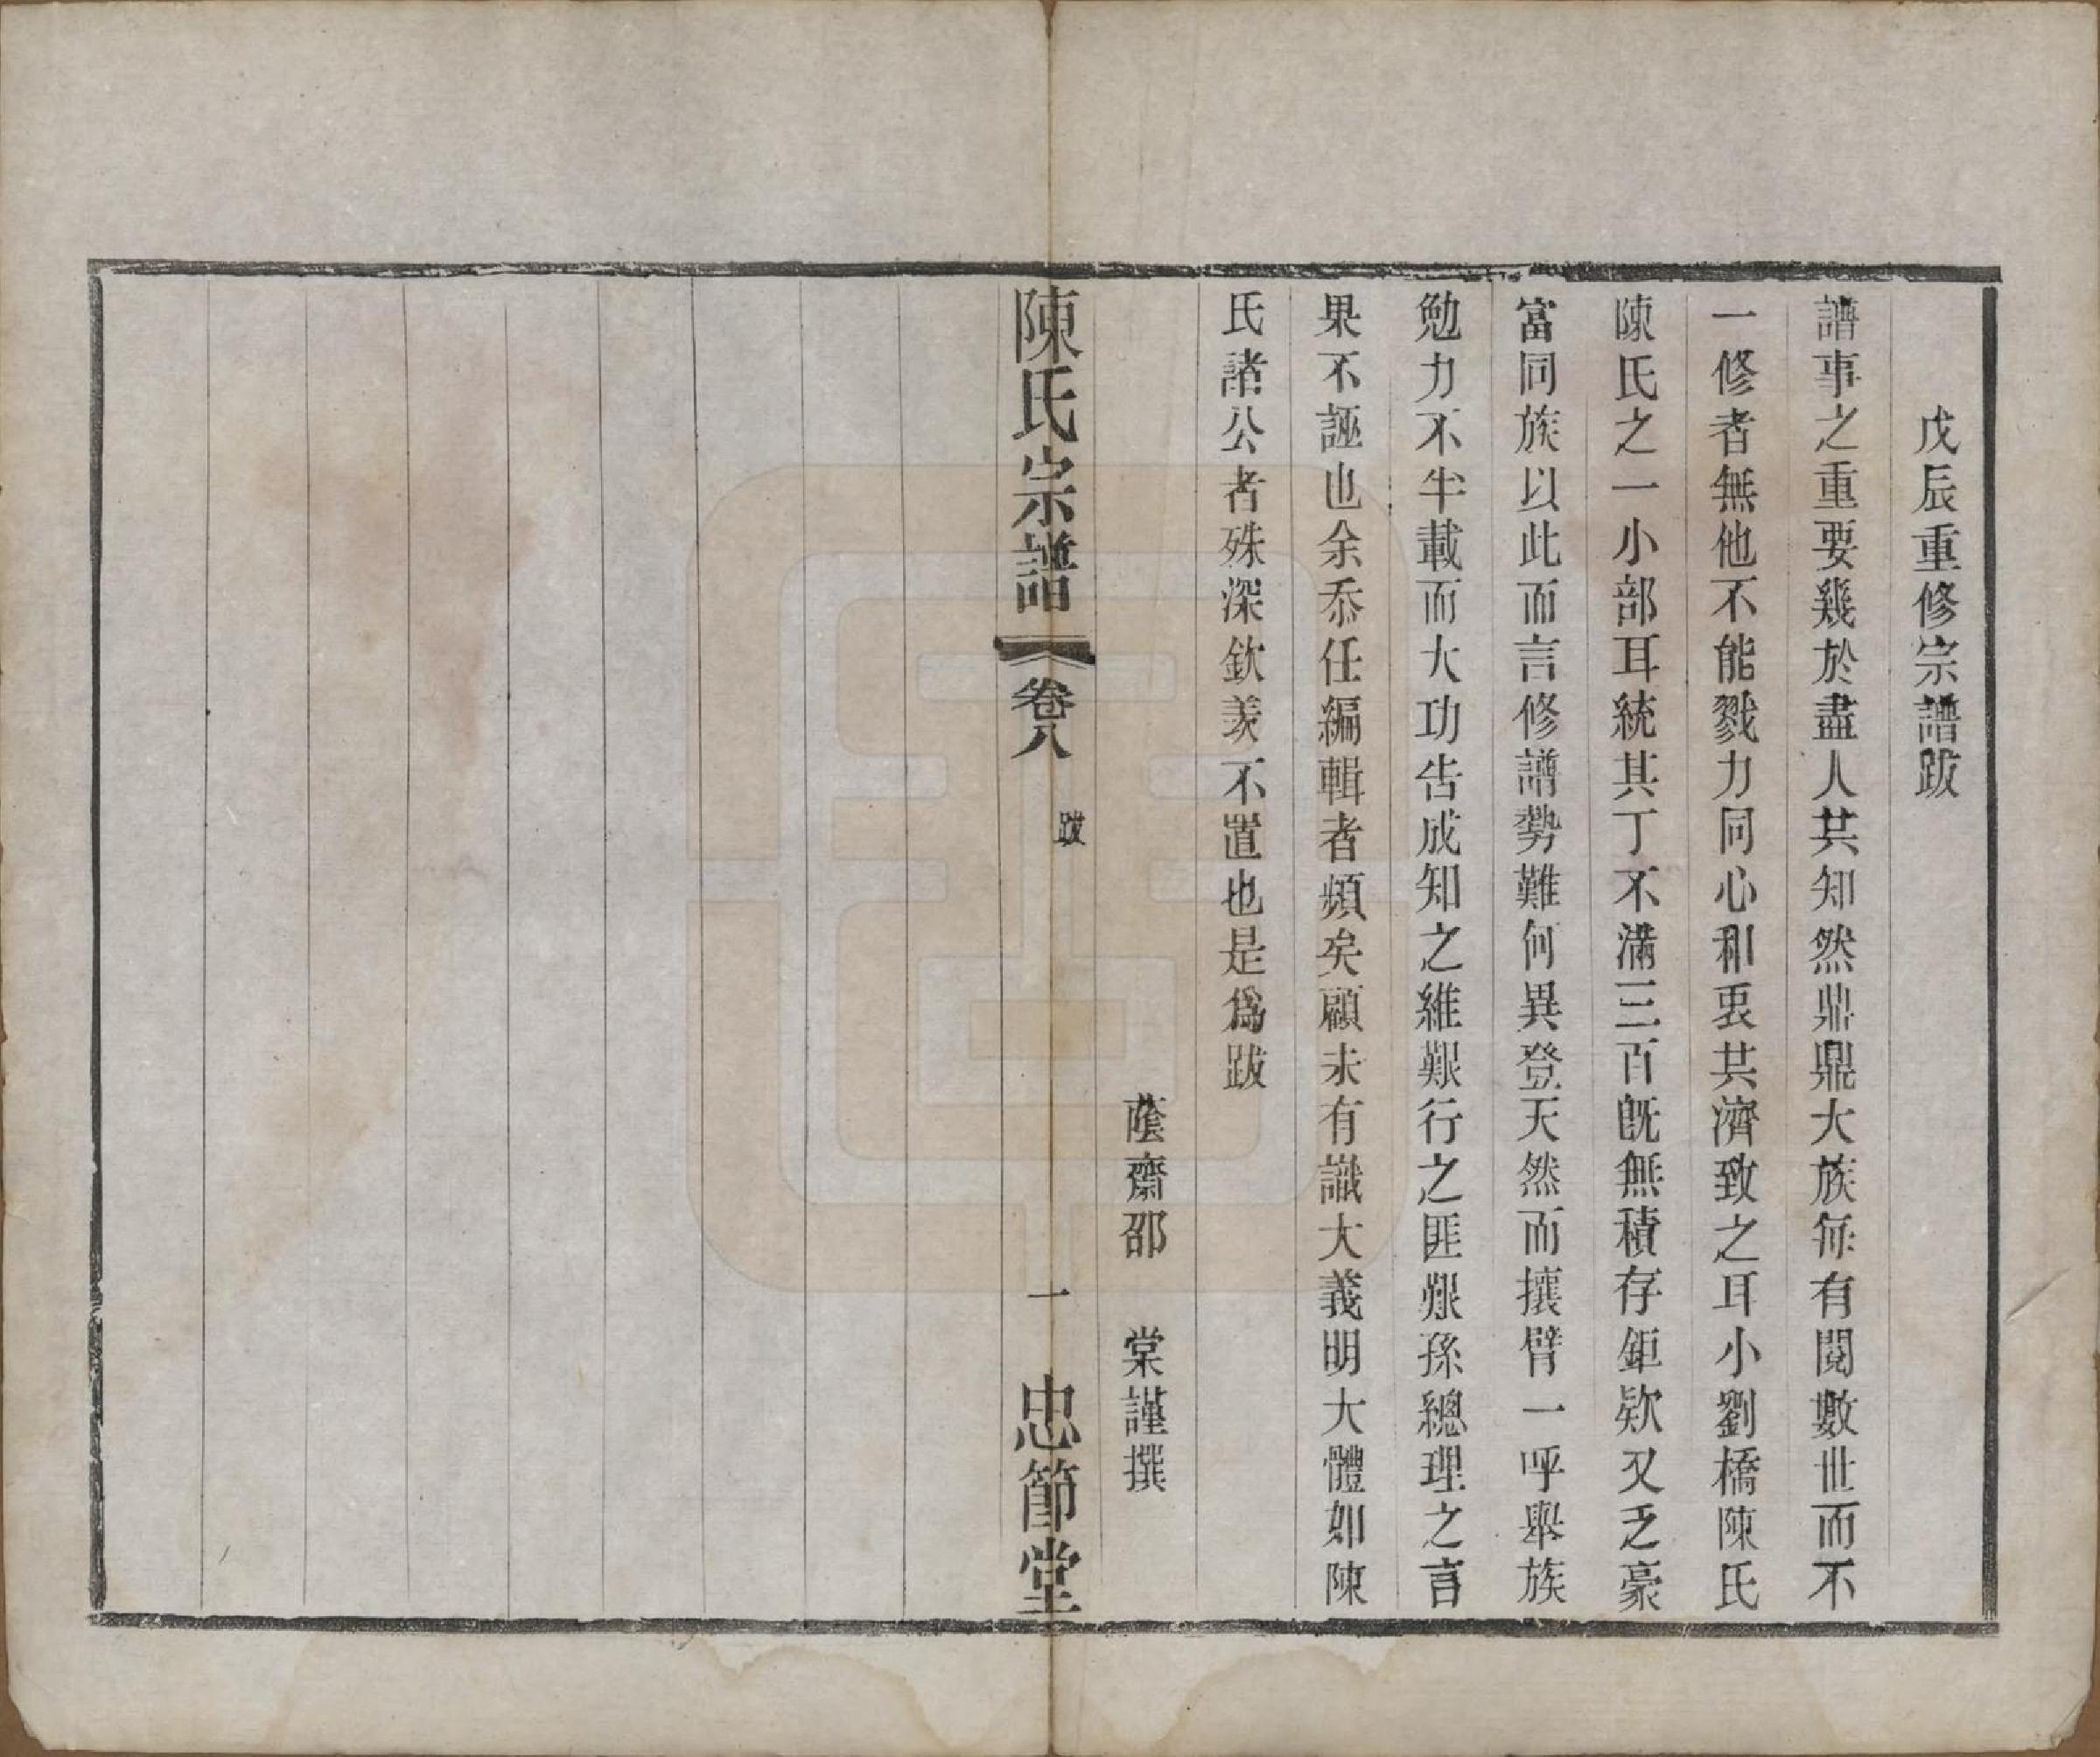 戊辰重修宗譜跋
譜事之重要幾於盡人共知然鼎鼎大族每有閱數世而不
一修者無他不能戮力同心和衷共濟致之耳小劉橋陳氏
陳氏之一小部耳統其丁不滿三百旣無積存鉅欵又乏豪
富同族以此而言修譜勢難何異登天然而攘臂一呼舉族
勉力不半載而大功告成知之維艱行之匪艱孫總理之言
果不誣也余忝任編輯者頻矣顧未有識大義明大體如陳
氏諸公者殊深欽羨不置也是爲跋
蔭齋邵 棠謹撰
陳氏宗譜 卷八 跋 一 忠節堂